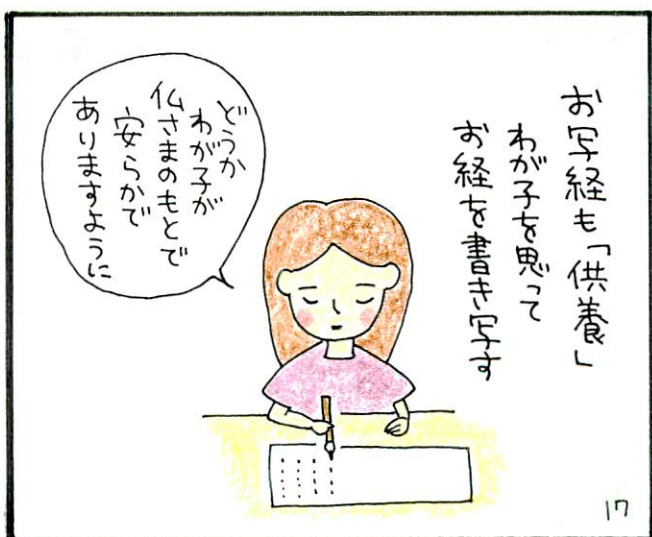 お写経も「供養」
わが子を思って
お経を書き写す
どうか
わが子が
仏さまのもとで
安らかで
ありますように
17